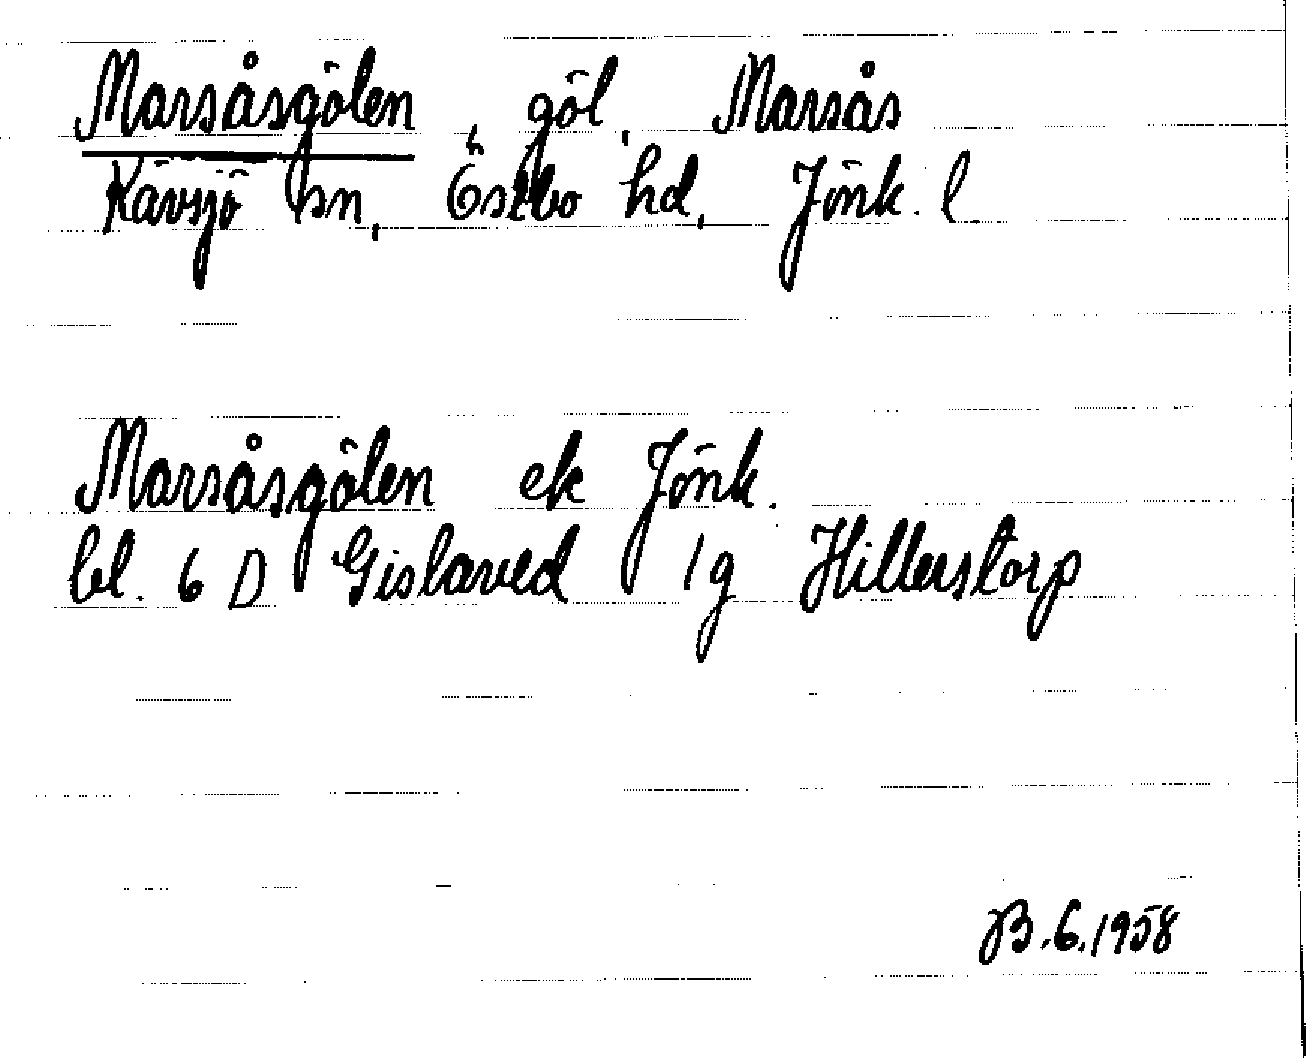 Marsåsgölen, göl, Marsås
Kävsjö sn, Östbo hd, Jönk. l.
Marsåsgölen ek Jönk.
bl. 6 D Gislaved 1g Hillerstorp
B.6.1958